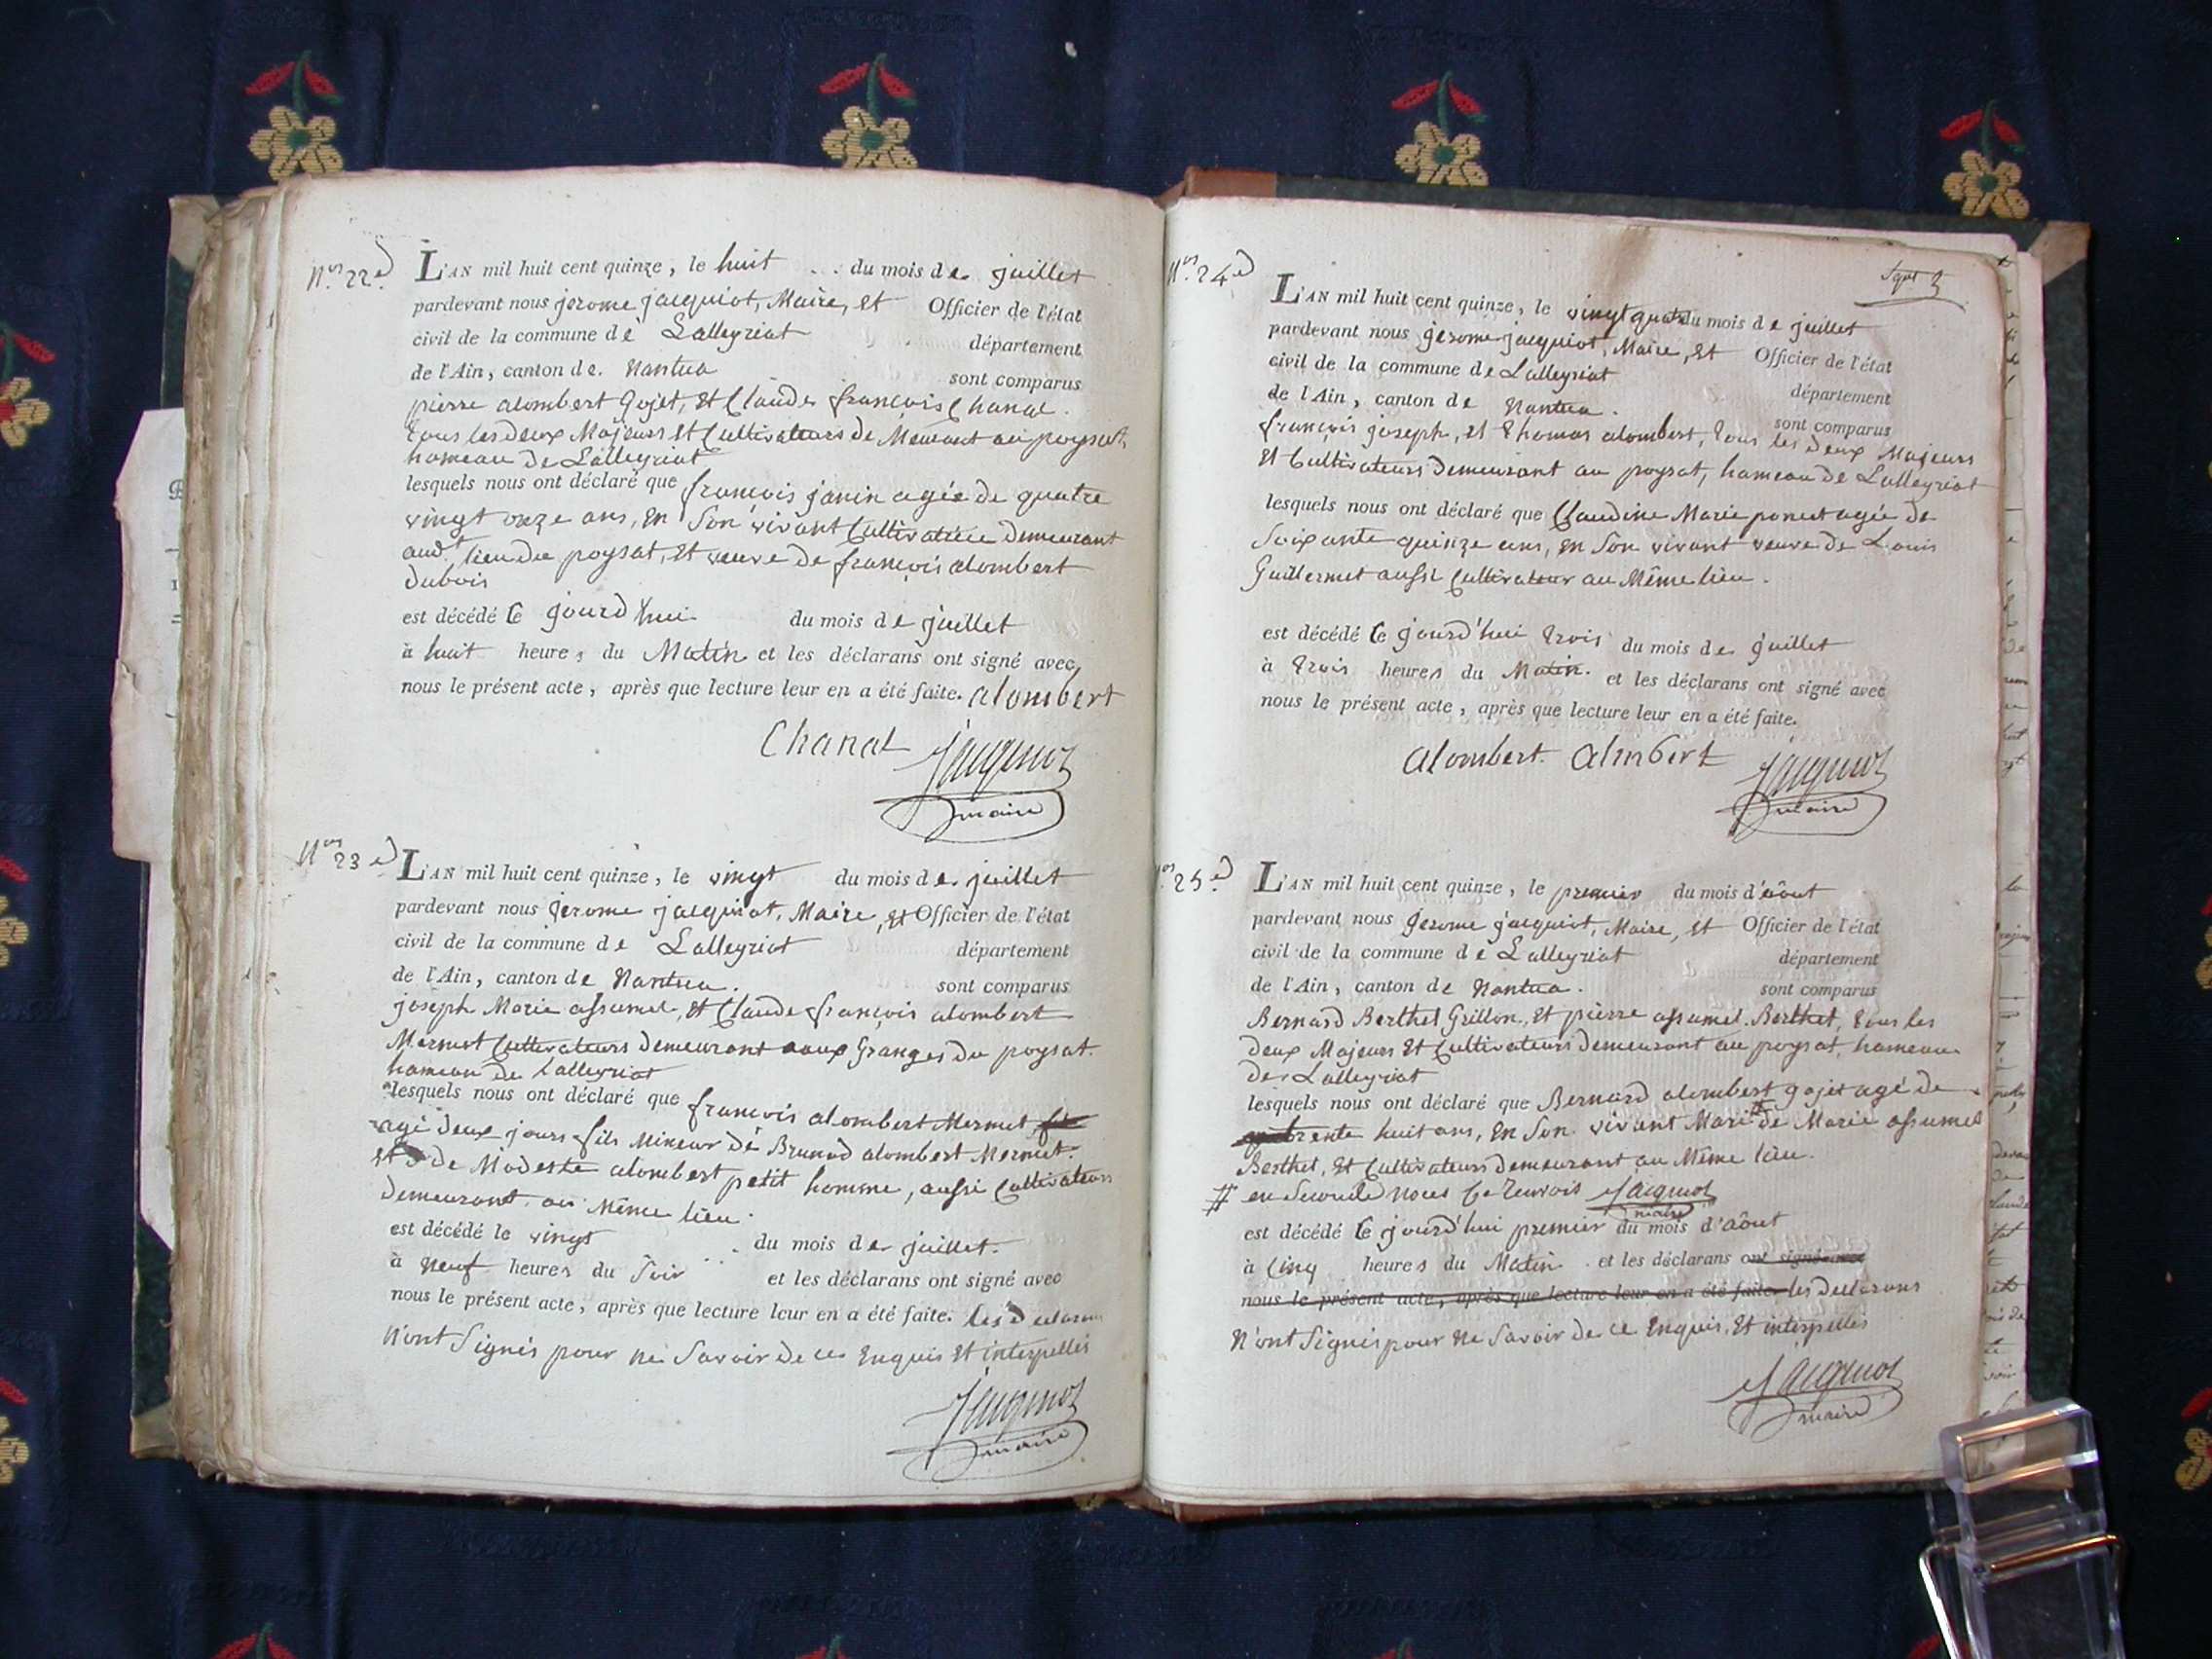 Nos. 22.d
L'AN mil huit cent quinze, le huit .. du mois de juillet
pardevant nous jerome jacquiot, Maire, et Officier de l'état
civil de la commune de Lalleyriat département
de l'Ain, canton de. Nantua sont comparus
pierre alombert Gojet, Et Claude françois Chanal.
tous les deux Majeurs Et Cultivateurs demeurant au poysat
hameau de Lalleyriat
lesquels nous ont déclaré que françois janin agée de quatre
vingt onze ans, En son vivant Cultivatrice demeurant
aud.t lieu du poysat, Et veuve de françois alombert
dubois
est décédé Ce jourd'hui du mois de juillet
à huit heures du Matin et les déclarans ont signé avec
nous le présent acte, après que lecture leur en a été faite. alombert
Chanal Jacquiot
maire
Nos 23 d
L'AN mil huit cent quinze, le vingt du mois de juillet
pardevant nous jerome jacquiot, Maire, et Officier de l'état
civil de la commune de Lalleyriat département
de l'Ain, canton de Nantua. sont comparus
joseph Marie assumel, Et Claude françois alombert
Mermet Cultivateurs demeurant aux Granges du poysat.
hameau de Lalleyriat
lesquels nous ont déclaré que françois alombert Mermet
agé deux jours fils Mineur de Brunod alombert Mermet.
et de Modeste alombert petit homme, aussi Cultivateurs
demeurant au Même lieu.
est décédé le vingt du mois de juillet.
à Neuf heures du Soir et les déclarans ont signé avec
nous le présent acte, après que lecture leur en a été faite. les declarans
N'ont Signés pour ne Savoir de ce Enquis Et interpellés
Jacquiot
maire
Nos. 24d
L'AN mil huit cent quinze, le vingt quatre du mois de juillet
pardevant nous jerome jacquiot, Maire, Et Officier de l'état
civil de la commune de Lalleyriat département
de l'Ain, canton de Nantua. sont comparus
françois joseph, et Thomas alombert, tous les deux Majeurs
Et Cultivateurs demeurant au poysat, hameau de Lalleyriat
lesquels nous ont déclaré que Claudine Marie ponset agée de
Soixante quinze ans, En Son vivant veuve de Louis
Guillermet aussi Cultivateur au Même lieu.
est décédé Ce jourd'hui trois du mois de juillet
à trois heures du Matin. et les déclarans ont signé avec
nous le présent acte, après que lecture leur en a été faite.
alombert. alombert Jacquiot
maire
25.d
L'AN mil huit cent quinze, le premier du mois d'août
pardevant nous jerome jacquiot, Maire, et Officier de l'état
civil de la commune de Lalleyriat département
de l'Ain, canton de Nantua. sont comparus
Bernard Berthet Grillon, Et pierre assumel. Berthet, tous les
deux Majeurs Et Cultivateurs demeurant au poysat, hameau
de Lalleyriat
lesquels nous ont déclaré que Bernard alombert gojet agé de
trente huit ans, En Son vivant Mari # de Marie assumel
Berthet, Et Cultivateurs demeurant au Même lieu.
# en Seconde noces Ce Renvois Jacquiot
maire
est décédé Ce jourd'hui premier du mois d'août
à Cinq heures du Matin. et les déclarans ont signé avec
nous le présent acte, après que lecture leur en a été faite. les declarans
N'ont Signés pour ne Savoir de ce Enquis, Et interpellés
Jacquiot
maire